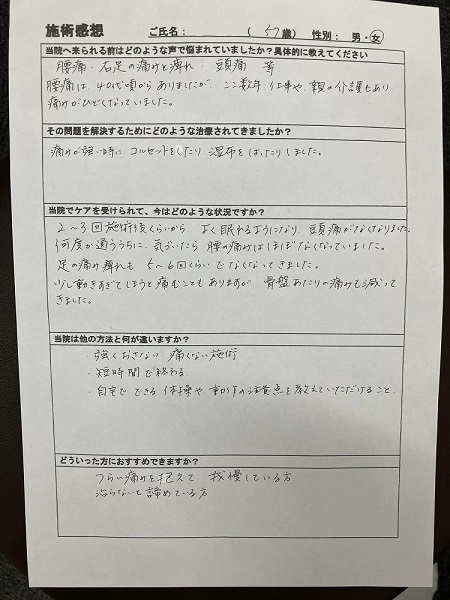 施術感想 ご氏名: (57歳) 性別: 男・女
当院へ来られる前はどのような声で悩まれていましたか?具体的に教えてください
腰痛・右足の痛みと痺れ・頭痛 等
腰痛は、40代頃からありましたが、ここ数年、仕事や親の介護もあり
痛みがひどくなっていました。
その問題を解決するためにどのような治療されてきましたか?
痛みが強い時に コルセットをしたり 湿布をはったりしました。
当院でケアを受けられて、今はどのような状況ですか?
2〜3回施術後くらいから よく眠れるようになり 頭痛がなくなりました。
何度か通ううちに、気づいたら 腰の痛みはほぼなくなっていました。
足の痛み痺れも 5〜6回くらいでなくなってきました。
少し動きすぎてしまうと痛むこともありますが 骨盤あたりの痛みも減って
きました。
当院は他の方法と何が違いますか?
・強くおさない 痛くない施術
・短時間で終わる
・自宅で できる 体操や、動かす時の注意点を教えていただけること
どういった方におすすめできますか?
つらい痛みを抱えて 我慢している方
治らないと諦めている方